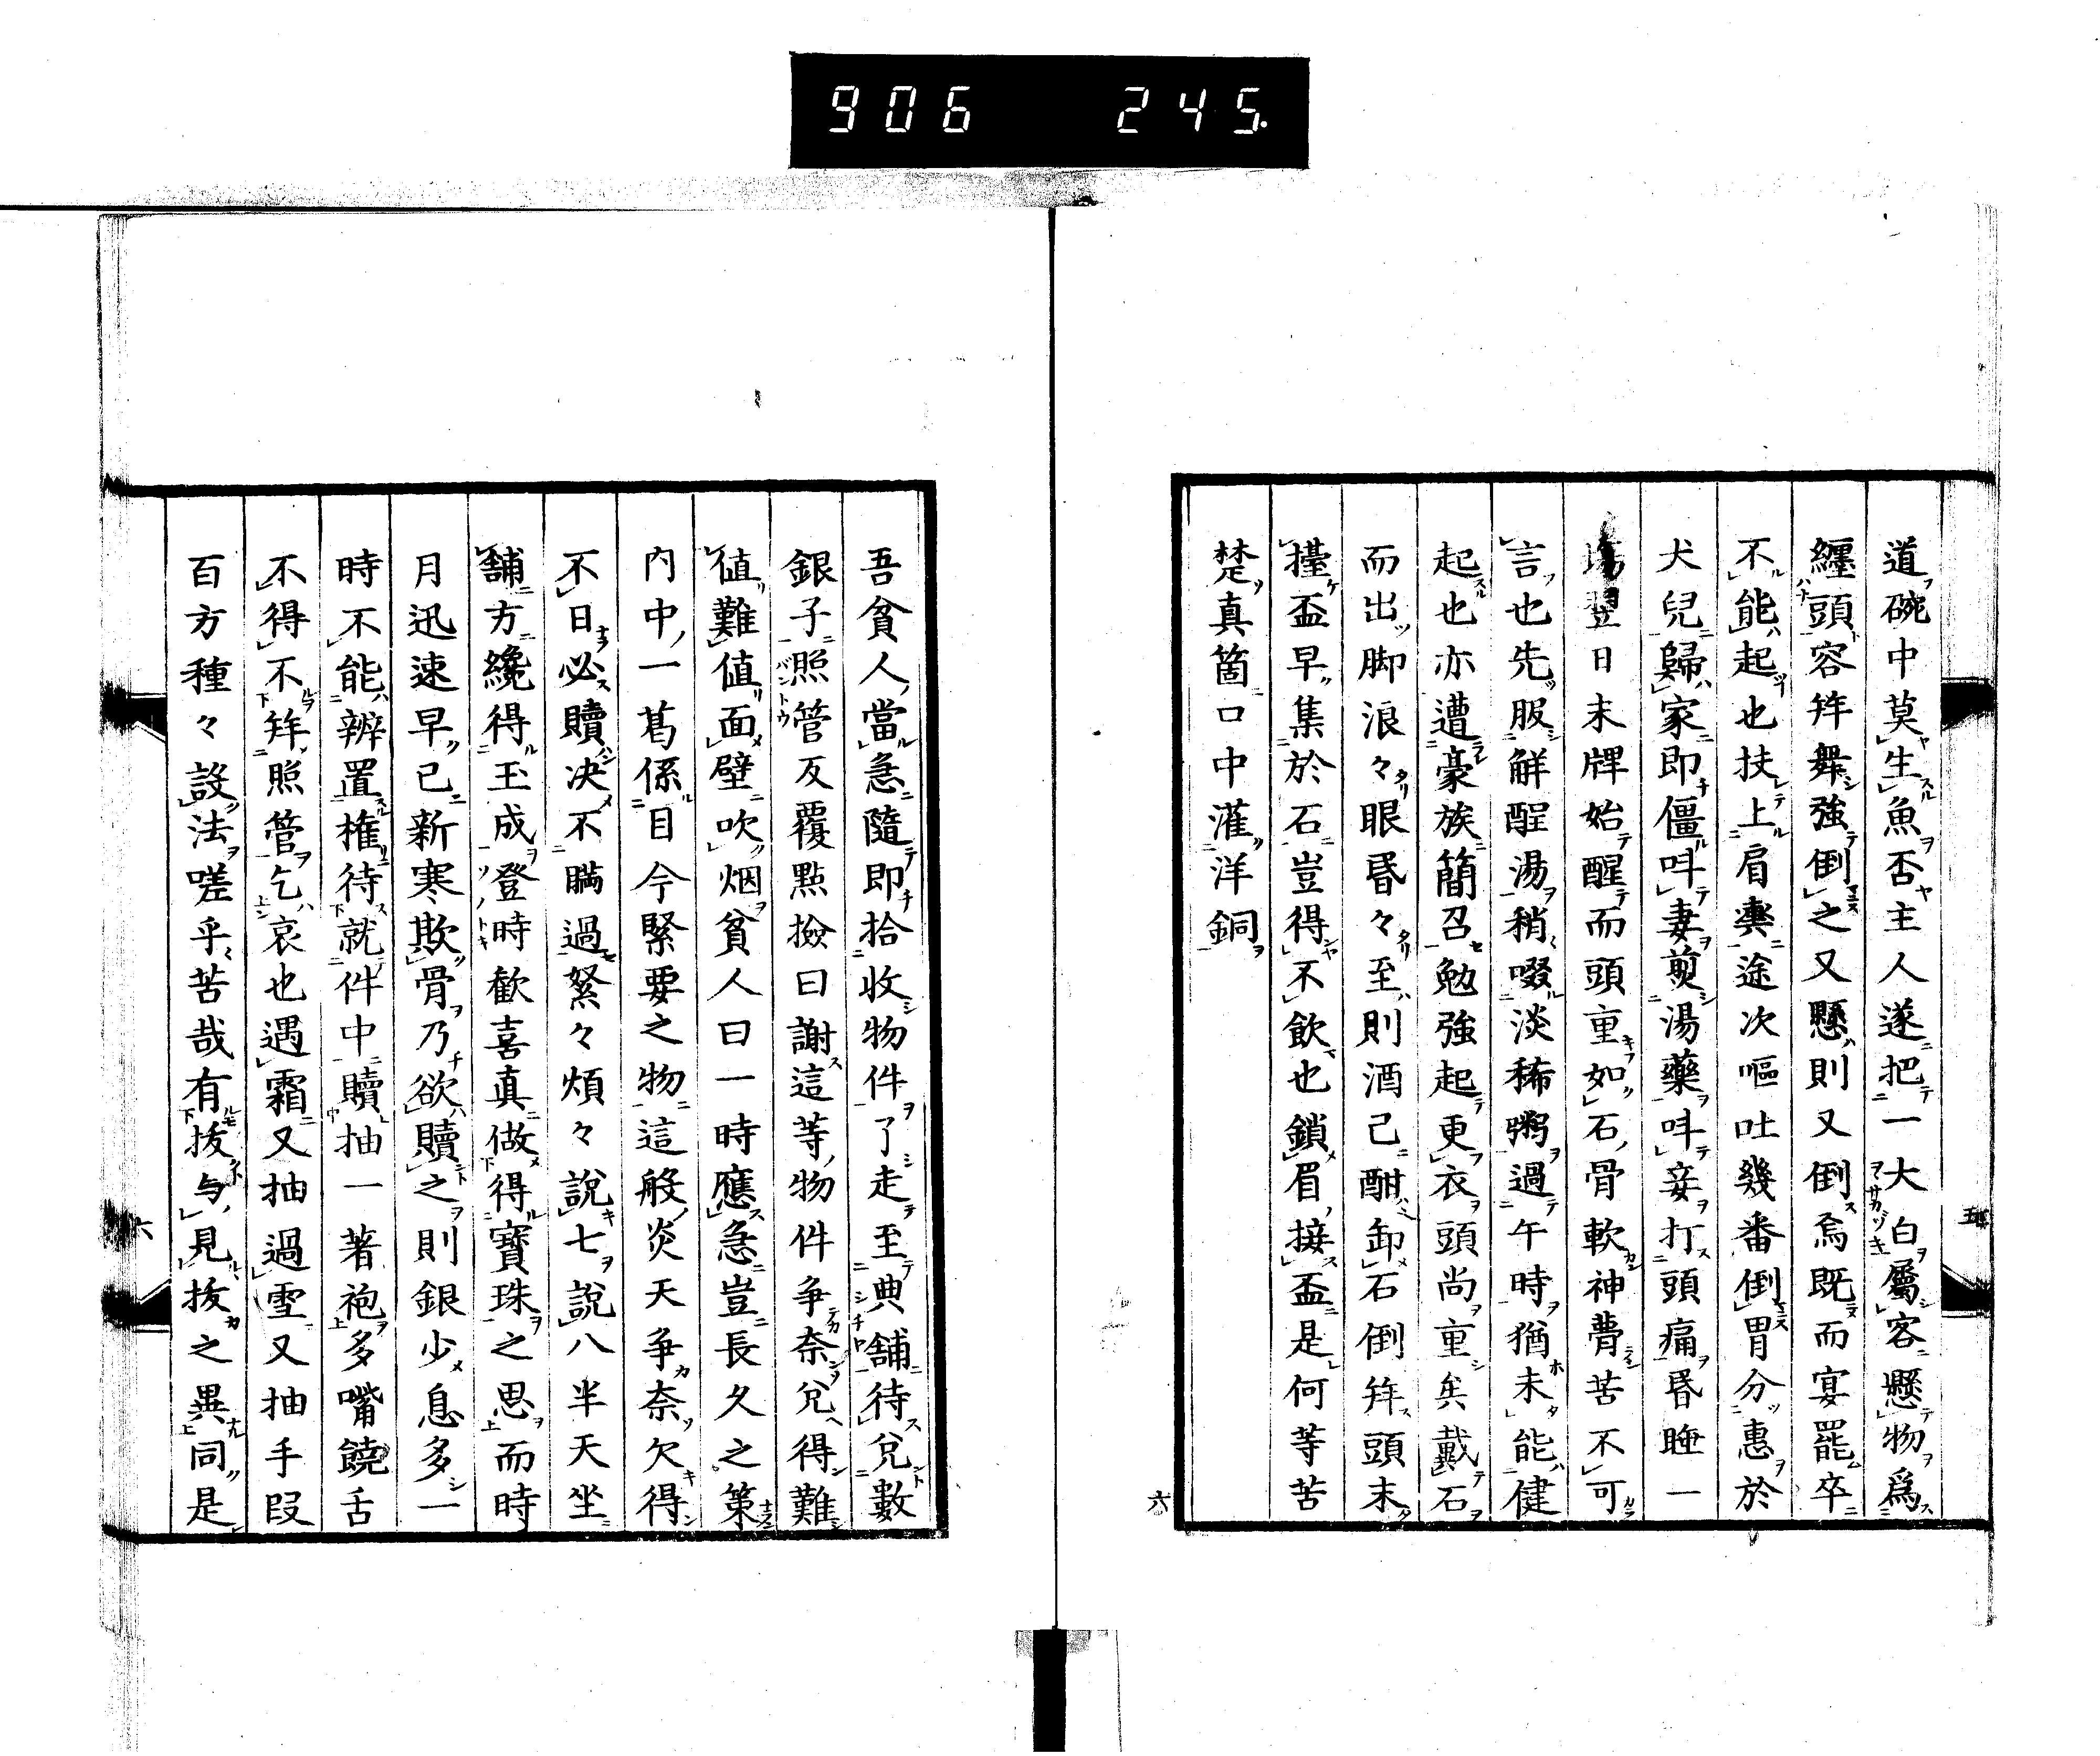 906 245.
道碗中莫生魚否主人遂把一大白屬客懸物爲
纏頭容拜舞強倒之又懸則又倒焉既而宴罷卒
不能起也扶上肩輿途次嘔吐幾番倒胃分惠於
犬兒歸家即僵呌妻煎湯藥呌妾打頭痛昏睡一
塲翌日未牌始醒而頭重如石骨軟神瞢苦不可
言也先服觧酲湯稍啜淡稀粥過午時猶未能健
起也亦遭豪族簡召勉強起更衣頭尚重矣戴石
而出脚浪々眼昏々至則酒已酣卸石倒拜頭未
擡盃早集於石豈得不飲也鎖眉接盃是何等苦
楚真箇口中灌洋銅
五
六
吾貧人當急隨即拾收物件了走至典舖待兌數
銀子照管反覆點撿曰謝這等物件争奈兌得難
值難值面壁吹烟貧人曰一時應急豈長久之策
内中一葛係目今緊要之物這般炎天争奈欠得
不日必贖决不瞞過絮々煩々說七說八半天坐
舖方纔得玉成登時歡喜真做得寳珠之思而時
月迅速早已新寒欺骨乃欲贖之則銀少息多一
時不能辨置権待就件中贖抽一著袍多嘴饒舌
不得不拜照管乞哀也遇霜又抽過雪又抽手叚
百方種々設法嗟乎苦哉有拔与見拔之異同是
六